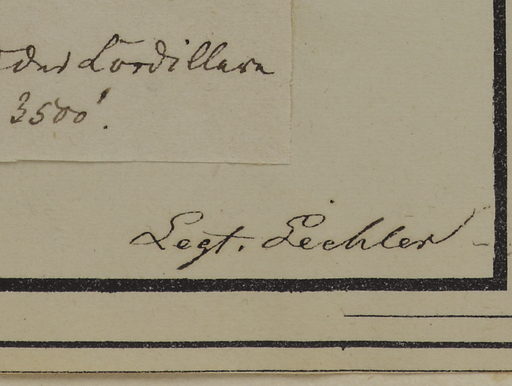 der Cordilleren
3500'.
Legt. Lechler